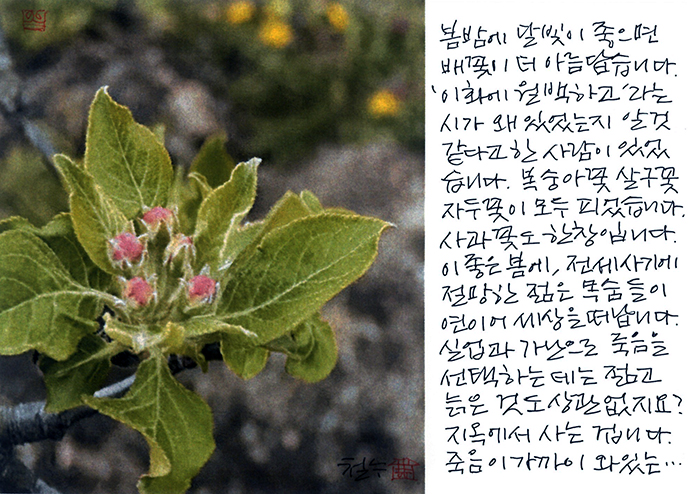 봄밤에 달빛이 좋으면
배꽃이 더 아름답습니다.
'이화에 월백하고'라는
시가 왜 있었는지 알것
같다고 한 사람이 있었
습니다. 복숭아꽃 살구꽃
자두꽃이 모두 피었습니다.
사과꽃도 한창입니다.
이 좋은 봄에, 전세사기에
절망한 젊은 목숨들이
연이어 세상을 떠납니다.
실업과 가난으로 죽음을
선택하는데는 젊고
늙은 것도 상관없지요?
지옥에서 사는 겁니다.
죽음이 가까이 와있는…
철수